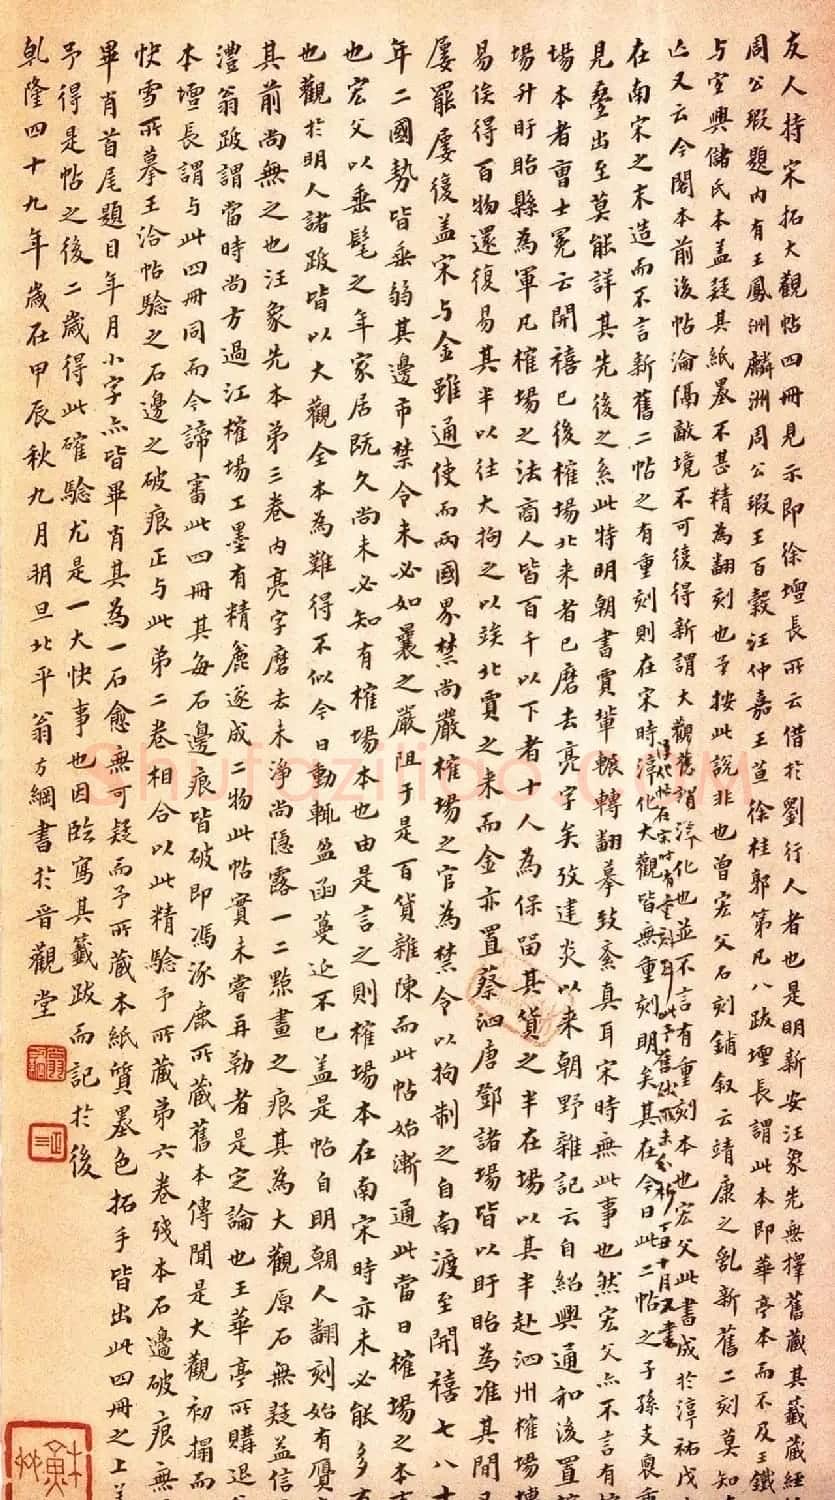 友人持宋拓大觀帖四冊見示即徐壇長所云借於劉行人者也是明新安汪象先無擇舊藏其籤藏經
周公瑕題內有王鳳洲麟洲周公瑕王百穀汪仲嘉王萱徐桂郭第凡八跋壇長謂此本即華亭本而不及王鐵
与宜興儲氏本盖疑其紙墨不甚精為翻刻也予按此說非也曾宏父石刻鋪叙云靖康之亂新舊二刻莫知
亡又云今閣本前後帖淪隔敵境不可復得新謂大觀舊謂淳化也並不言有重刻本也宏父此書成於淳祐戊
淳化帖石宋時有重刻耳此予舊跋所未分析丁丑十月又書
在南宋之末造而不言新舊二帖之有重刻則在宋時淳化大觀皆無重刻明矣其在今日此二帖之子孫支裔重
見疊出至莫能詳其先後之系此特明朝書賈輩輾轉翻摹致紊真耳宋時無此事也然宏父亦不言有
場本者曹士冕云開禧已後榷場北来者已磨去亮字矣攷建炎以来朝野雜記云自紹興通和後置
場升盱眙縣為軍凡榷場之法商人皆百千以下者十人為保畱其貨之半在場以其半赴泗州榷場
易俟得百物還復易其半以往大拘之以竢北賈之来而金亦置蔡泗唐鄧諸場皆以盱眙為准其間
屢罷屢復盖宋与金雖通使而兩國界禁尚嚴榷場之官為禁令以拘制之自南渡至開禧七八十
年二國勢皆垂弱其邊市禁令未必如曩之嚴阻于是百貨雜陳而此帖始漸通此當日榷場之本
也宏父以垂髦之年家居既久尚未必知有榷場本也由是言之則榷場本在南宋時亦未必能多
也觀於明人諸跋皆以大觀全本為難得不似今日動輒盈函蔓延不已盖是帖自明朝人翻刻始有贗
其前尚無之也汪象先本第三卷內亮字磨去未淨尚隱露一二點畫之痕其為大觀原石無疑益信
澧翁跋謂當時尚方過江榷場工墨有精麁遂成二物此帖實未嘗再勒者是定論也王華亭所購退
本壇長謂与此四冊同而今諦審此四冊其每石邊痕皆破即馮涿鹿所藏舊本傳聞是大觀初搨而
快雪所摹王洽帖驗之石邊之破痕正与此第二卷相合以此精驗予所藏第六卷殘本石邊破痕無
畢肖首尾題目年月小字亦皆畢肖其為一石愈無可疑而予所藏本紙質墨色拓手皆出此四冊之上
予得是帖之後二歲得此確驗尤是一大快事也因臨寫其籤跋而記於後
乾隆四十九年歲在甲辰秋九月朔旦北平翁方綱書於晉觀堂
shufaziliao.com